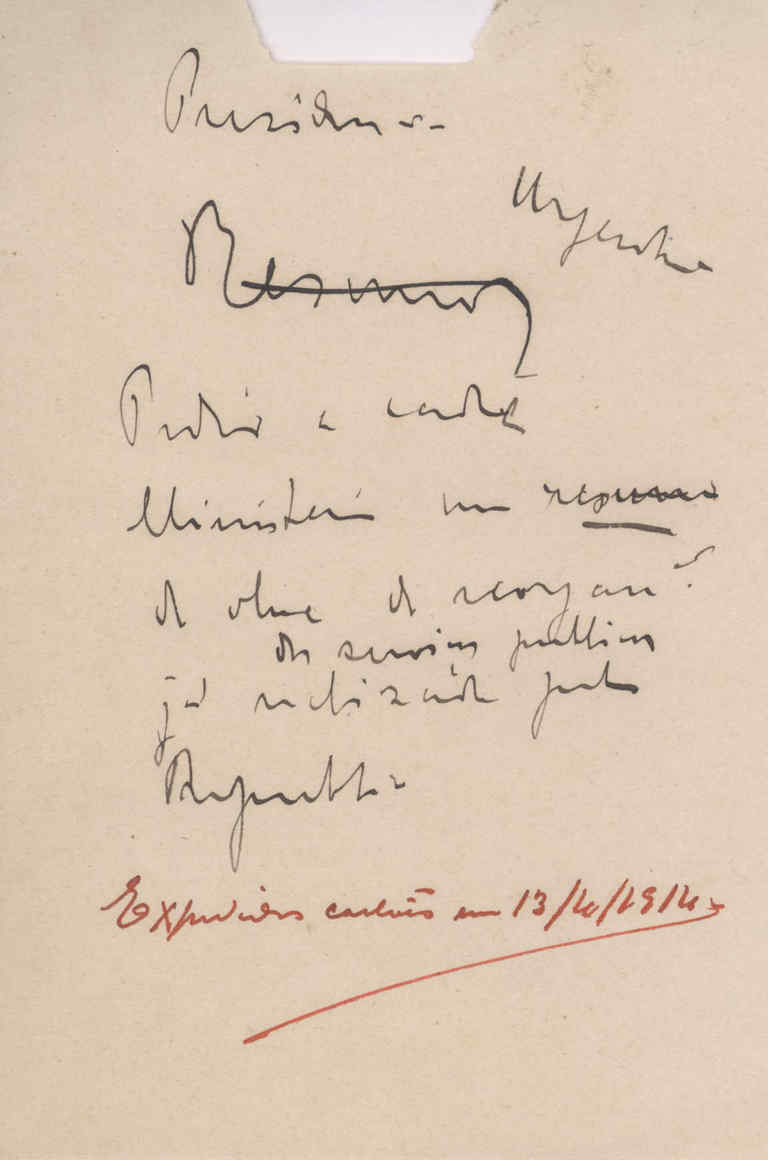 Presidencia
Urgente
Resumos
Pedir a cada
Ministerio um resumo
da obra de reorgan.
dos serviços publicos
já realisada pela
Republica
Expedidos cartões em 13/4/1914